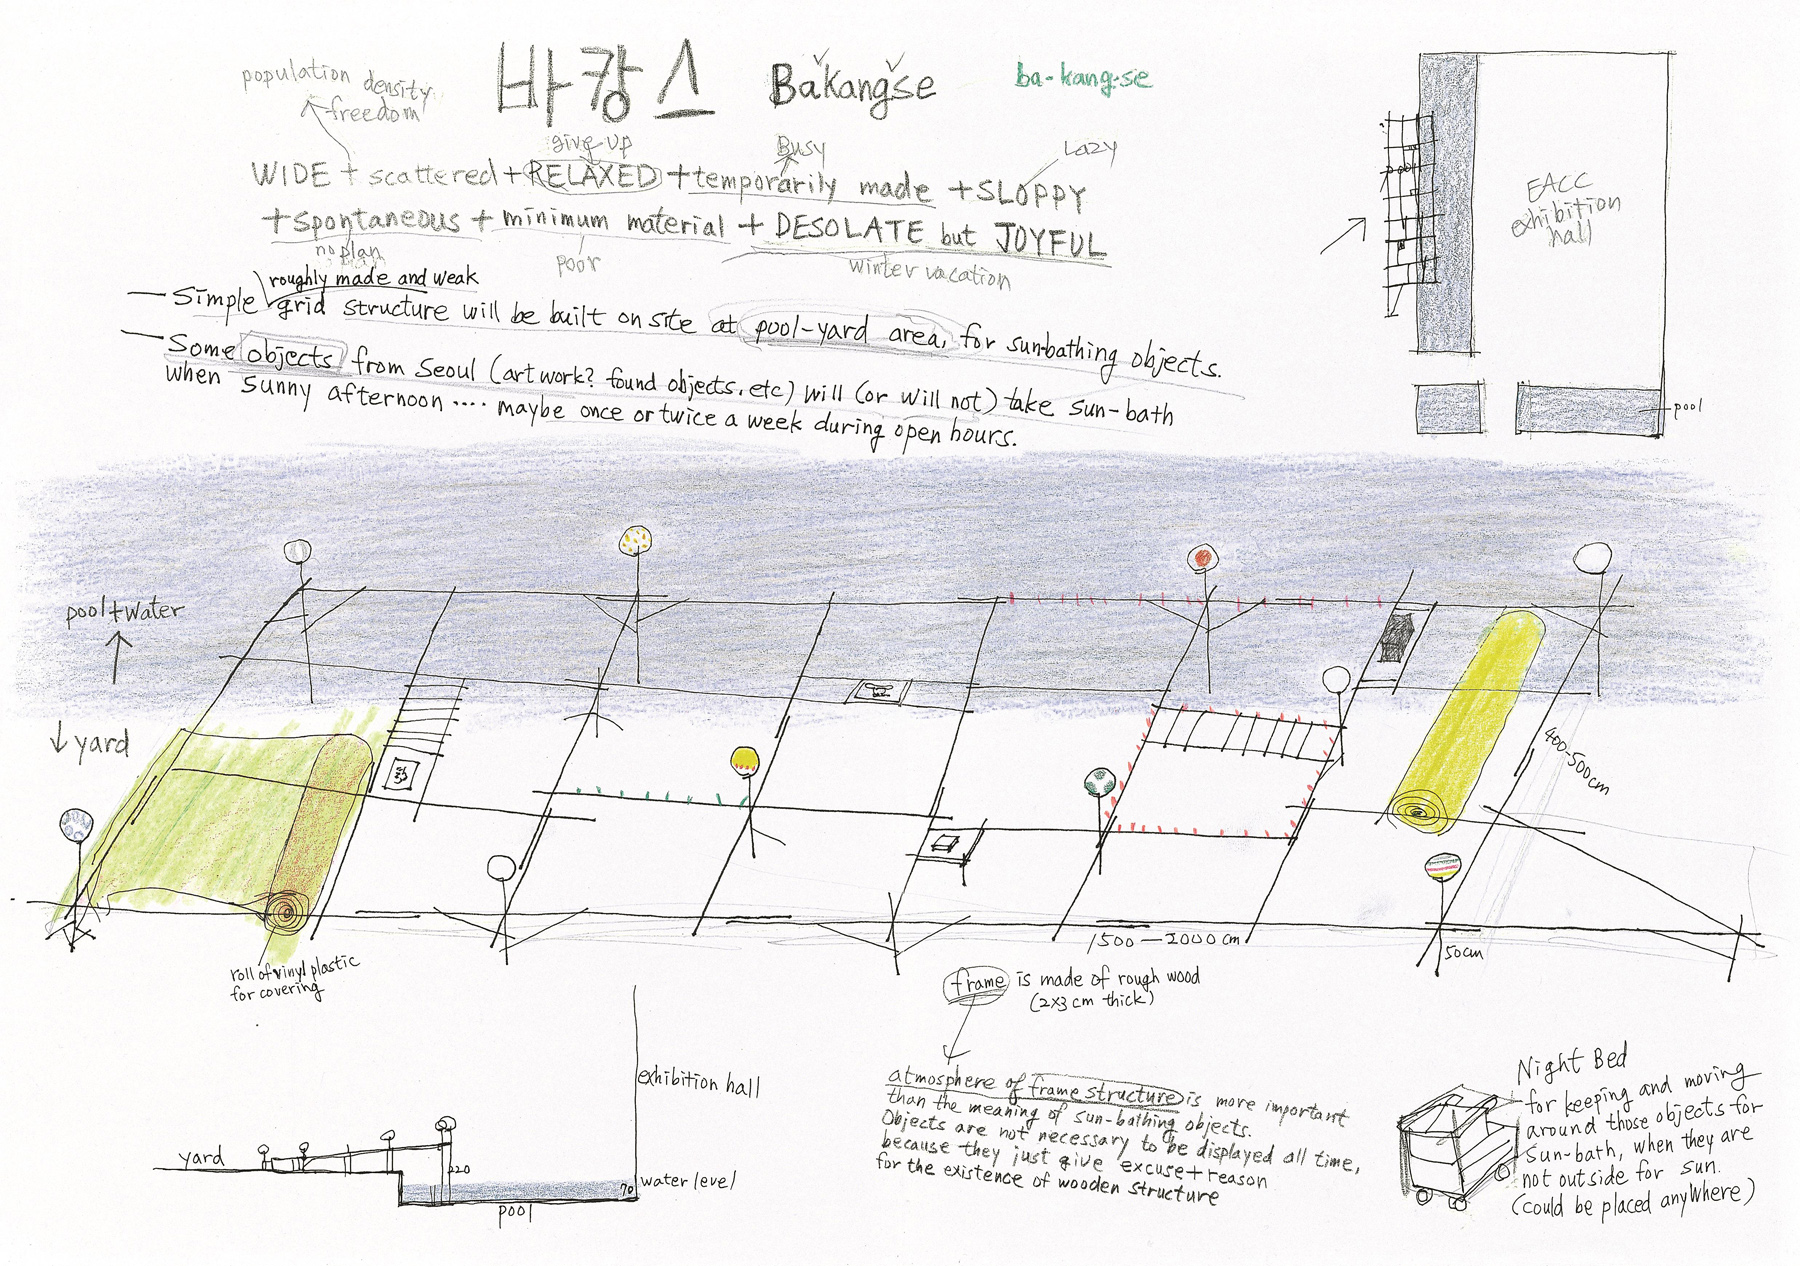 바캉스 Bakangse ba-kang-se
population density
freedom
give up
Busy
Lazy
WIDE + scattered + RELAXED + temporarily made + SLOPPY
+ spontaneous + minimum material + DESOLATE but JOYFUL
no plan
poor
winter vacation
roughly made and weak
— Simple grid structure will be built on site at pool-yard area, for sun-bathing objects.
— Some objects from Seoul (art work? found objects. etc) will (or will not) take sun-bath
when sunny afternoon .... maybe once or twice a week during open hours.
EACC
exhibition
hall
pool
pool
pool + water
yard
400-500cm
1500 — 2000 cm
50cm
roll of vinyl plastic
for covering
frame is made of rough wood
(2x3 cm thick)
atmosphere of frame structure is more important
than the meaning of sun-bathing objects.
Objects are not necessary to be displayed all time,
because they just give excuse + reason
for the existence of wooden structure
exhibition hall
yard
220
70
water level
pool
Night Bed
for keeping and moving
around those objects for
sun-bath, when they are
not outside for sun.
(could be placed anywhere)